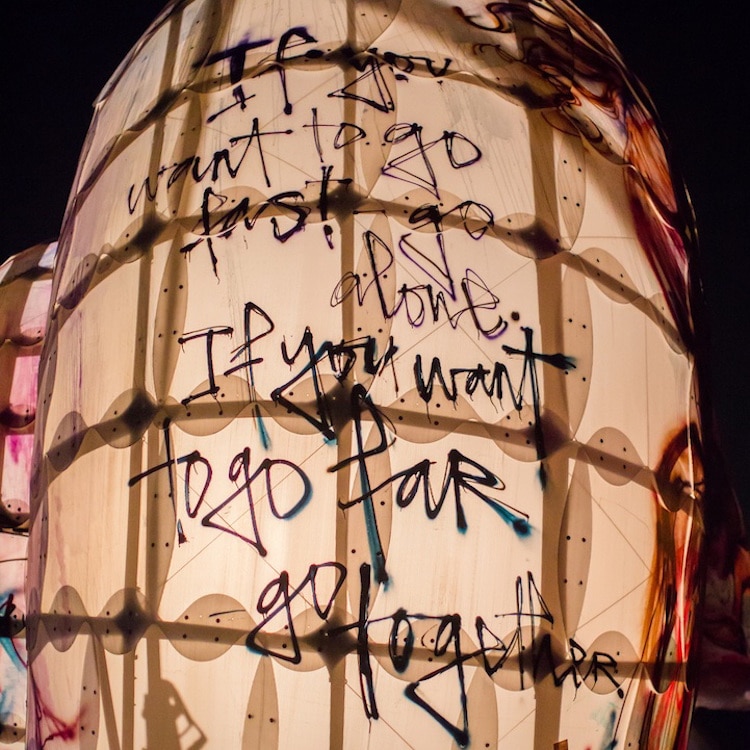 If you
want to go
fast - go
alone.
If you want
to go faR
- go togetheR.